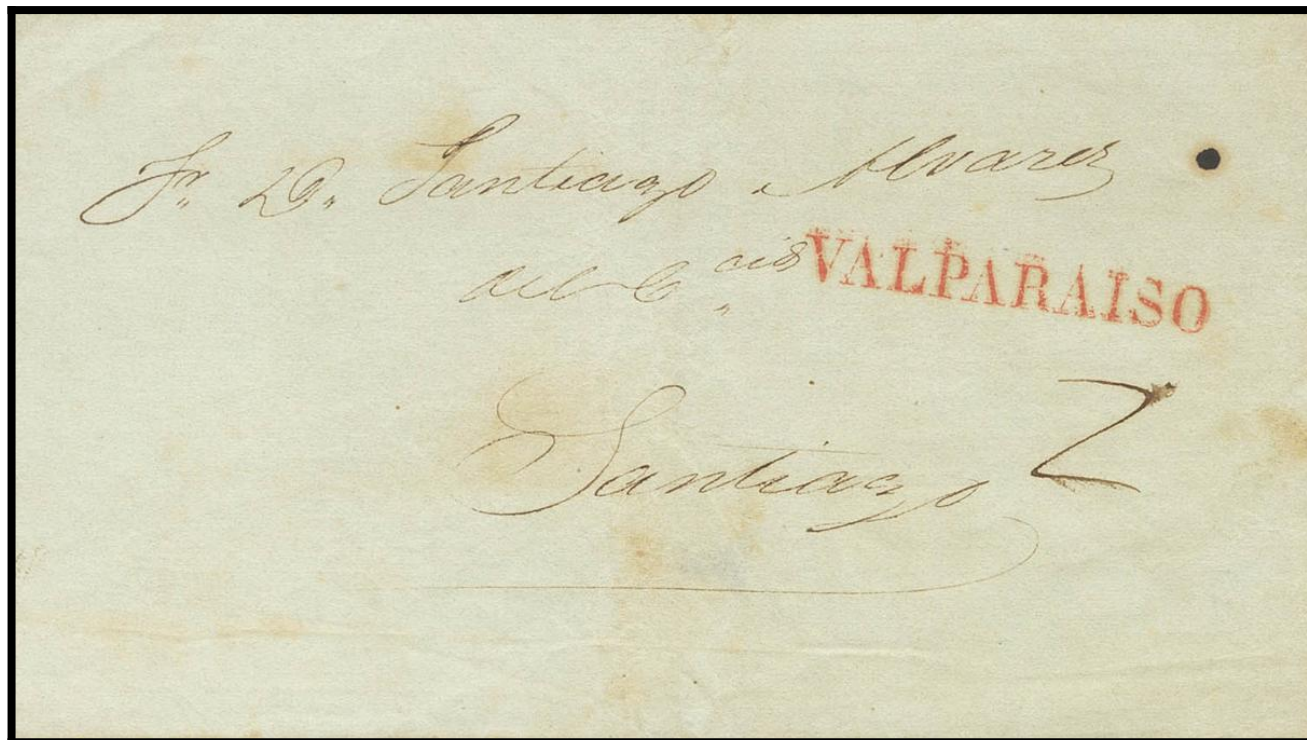 Sr. D. Santiago Alvarez
del C.cio VALPARAISO
Santiago 2